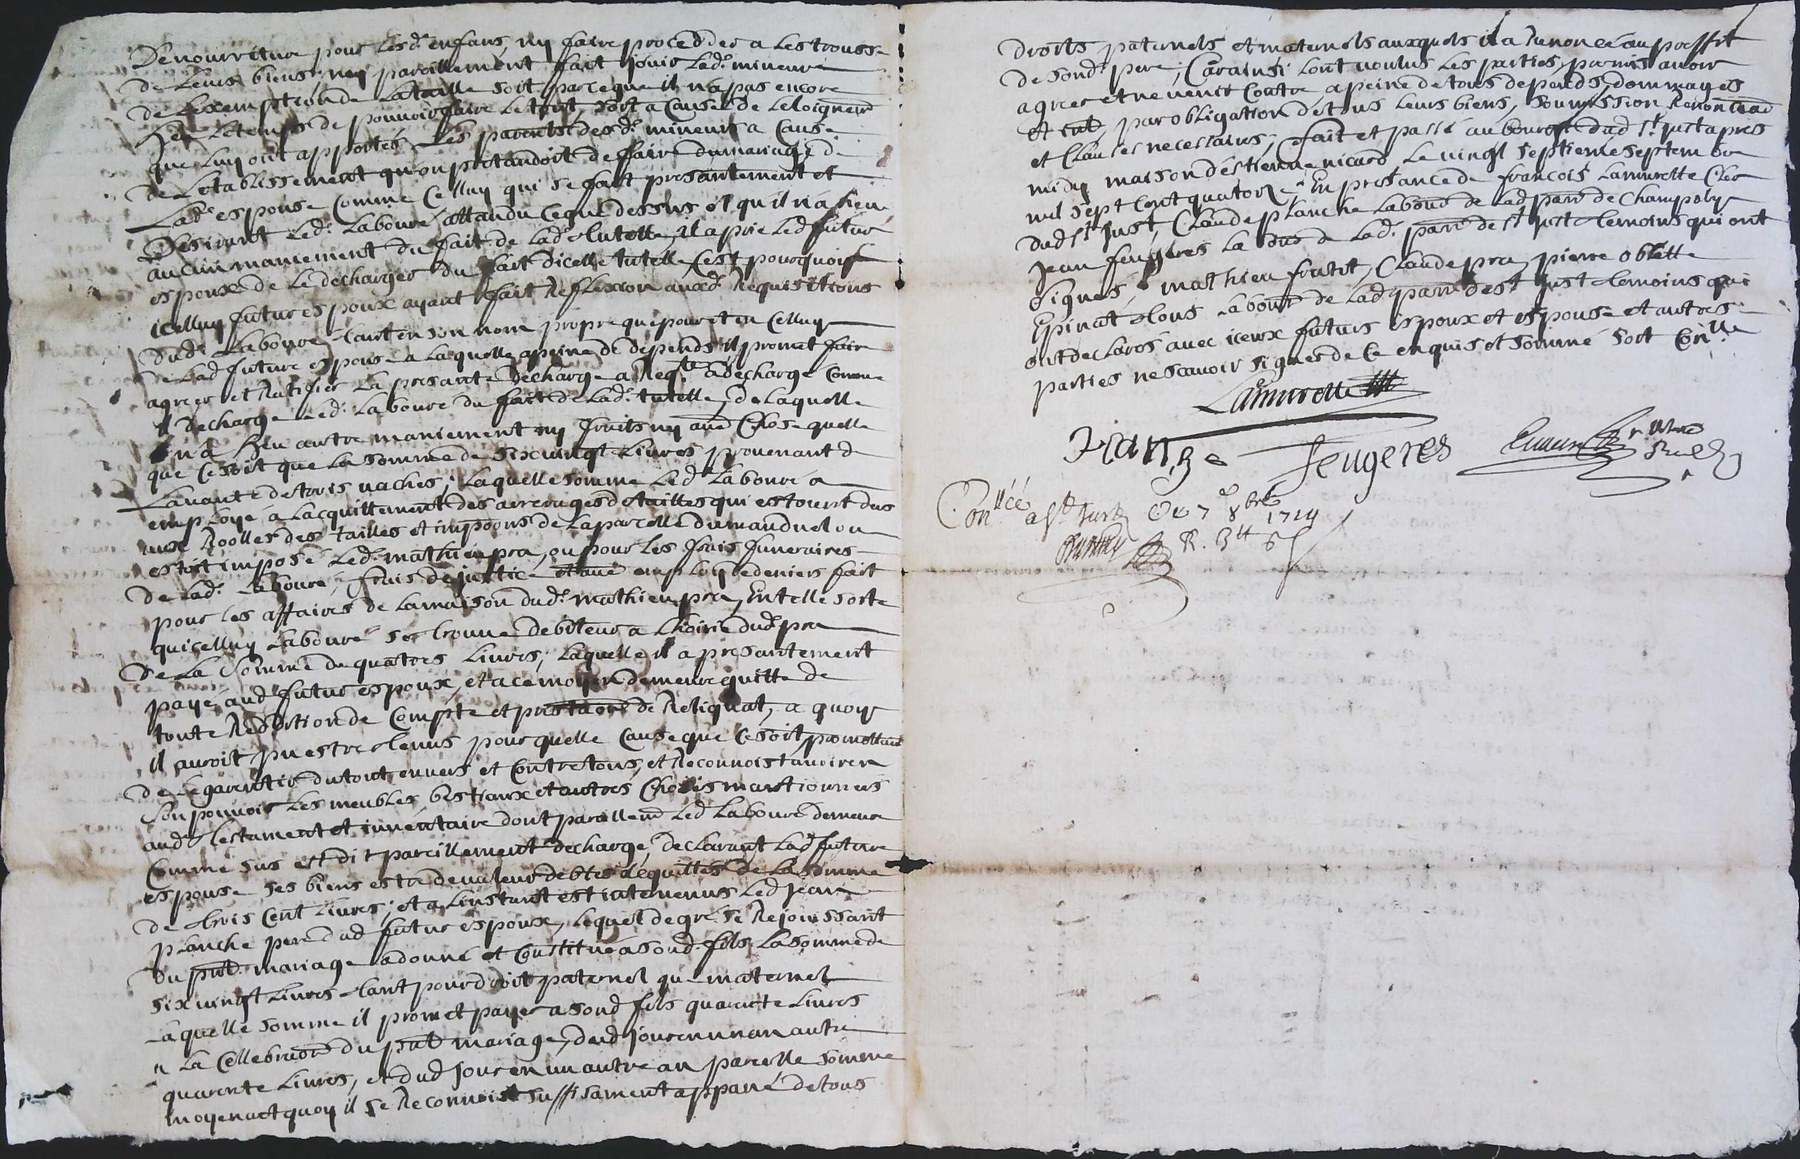 De nourriture pour lesd. enfans, ny faire proceder a les trousse
de leurs biens, ny pareillement fait jouir led. mineure
de Lexemption de la taille soit parce que il n'a pas encore
Heu le temps de pouvoir faire le tout soit a Cause de leloignem.
que luy ont apportés les parents desd. mineurs a Cause
de Letablissement qu'on pretandoit de faire du mariage de
Lad. espouse Comme Celluy qui se fait presantement et
Desirant led. Labouré attandu Ceque dessus et qu'il n'a heu
aucun maniement du fait de lad. tutelle, il a prié led. futur
espoux de le decharger du fait d'icelle tutelle, Cest pourquoy
icelluy futur espoux ayant fait Reflexion auxd. Requisitions
dud. Labouré tant en son nom propre que pour et en Celluy
de lad. future espouse a laquelle a peine de depends il promet faire
agreer et Ratifier La presante decharge a Req.te a dechargé Comme
il decharge led. Labouré du fait de lad. tutelle, de laquelle
il n'a Heu autre maniement ny fruits ny autre Chose quelle
que Ce soit que la somme de six vingt Livres provenant de
La vante de trois vaches, laquelle somme led. Labouré a
employé a lacquittement des arrerages de tailles qui estoient dus
aux Roolles des tailles et impoons de la parcelle du manduel ou
estoit imposé led. mathieu pra, ou pour les frais funeraires
de lad. Labouré, frais de justice et autre emploi de deniers fait
pour les affaires de la maison dud. mathieu pra, En telle sorte
qu'icelluy Labouré se trouve debiteur a Lhoirie dud. pra
De La somme de quatres Livres, laquelle il a presantement
payé aud. futur espoux, et a ce moyen demeure quitte de
toute Reddition de Compte et prestaon de Reliquat, a quoy
il auroit pu estre tenus pour quelle Cause que Ce soit promettant
de Legarentir du tout envers et Contre tous, et Reconnoist avoir en
son pouvoir les meubles, bestiaux et autres Choses mantionnés
aud. testament et inventaire dont pareillem. led. Labouré demeure
Comme sus est dit pareillement dechargé, declarant Lad. future
espouse ses biens estre de valeur debtes dequittes de la somme
de trois Cent Livres, et a Linstant est intervenus led. jean
planche pere dud. futur espoux, lequel de gré se Rejouissant
du pnt. mariage a donné et Constitué a sond. fils La somme de
six vingt Livres tant pour droit paternel que maternel
Laquelle somme il promet payer a sond. fils quarente Livres
a La Cellebraon du pnt mariage, dud. jour en un an autre
quarente Livres, et dud. jour en un autre an pareille somme
moyenant quoy il se Reconnoist suffisament appané de tous
droits paternels et maternels auxquels il a Renoncé au proffit
de sond. pere, Car ainsi l'ont voulus les parties, promis avoir
agreer et ne venir Contre a peine de tous depends, dommages
et int. par obligation de tous leurs biens, soumission Renonciaon
et Clauses necessaires, fait et passé au bourg dud. St. just apres
midy maison d'estienne nicard le vingt septieme septembre
mil sept cent quatorze En presance de francois Lamurette Clerc
dud. St. just Claude planche Laboure de lad. parr. de Champoly
jean feugeres laboure de lad. parr. de St. just temoins qui ont
signés, mathieu frutit, Claude pra, pierre oblette
Epinat tous laboure de lad. parr. de St. just temoins qui
ont declarés avec iceux futurs espoux et espouse et autres
parties ne scavoir signer de Ce enquis et sommé soit Con.lle
Lamurette
Feugeres
Con.llée a St. Just Ce 7 8bre 1714
R.